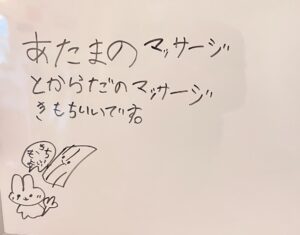 あたまのマッサージ
とからだのマッサージ
きもちいいです。